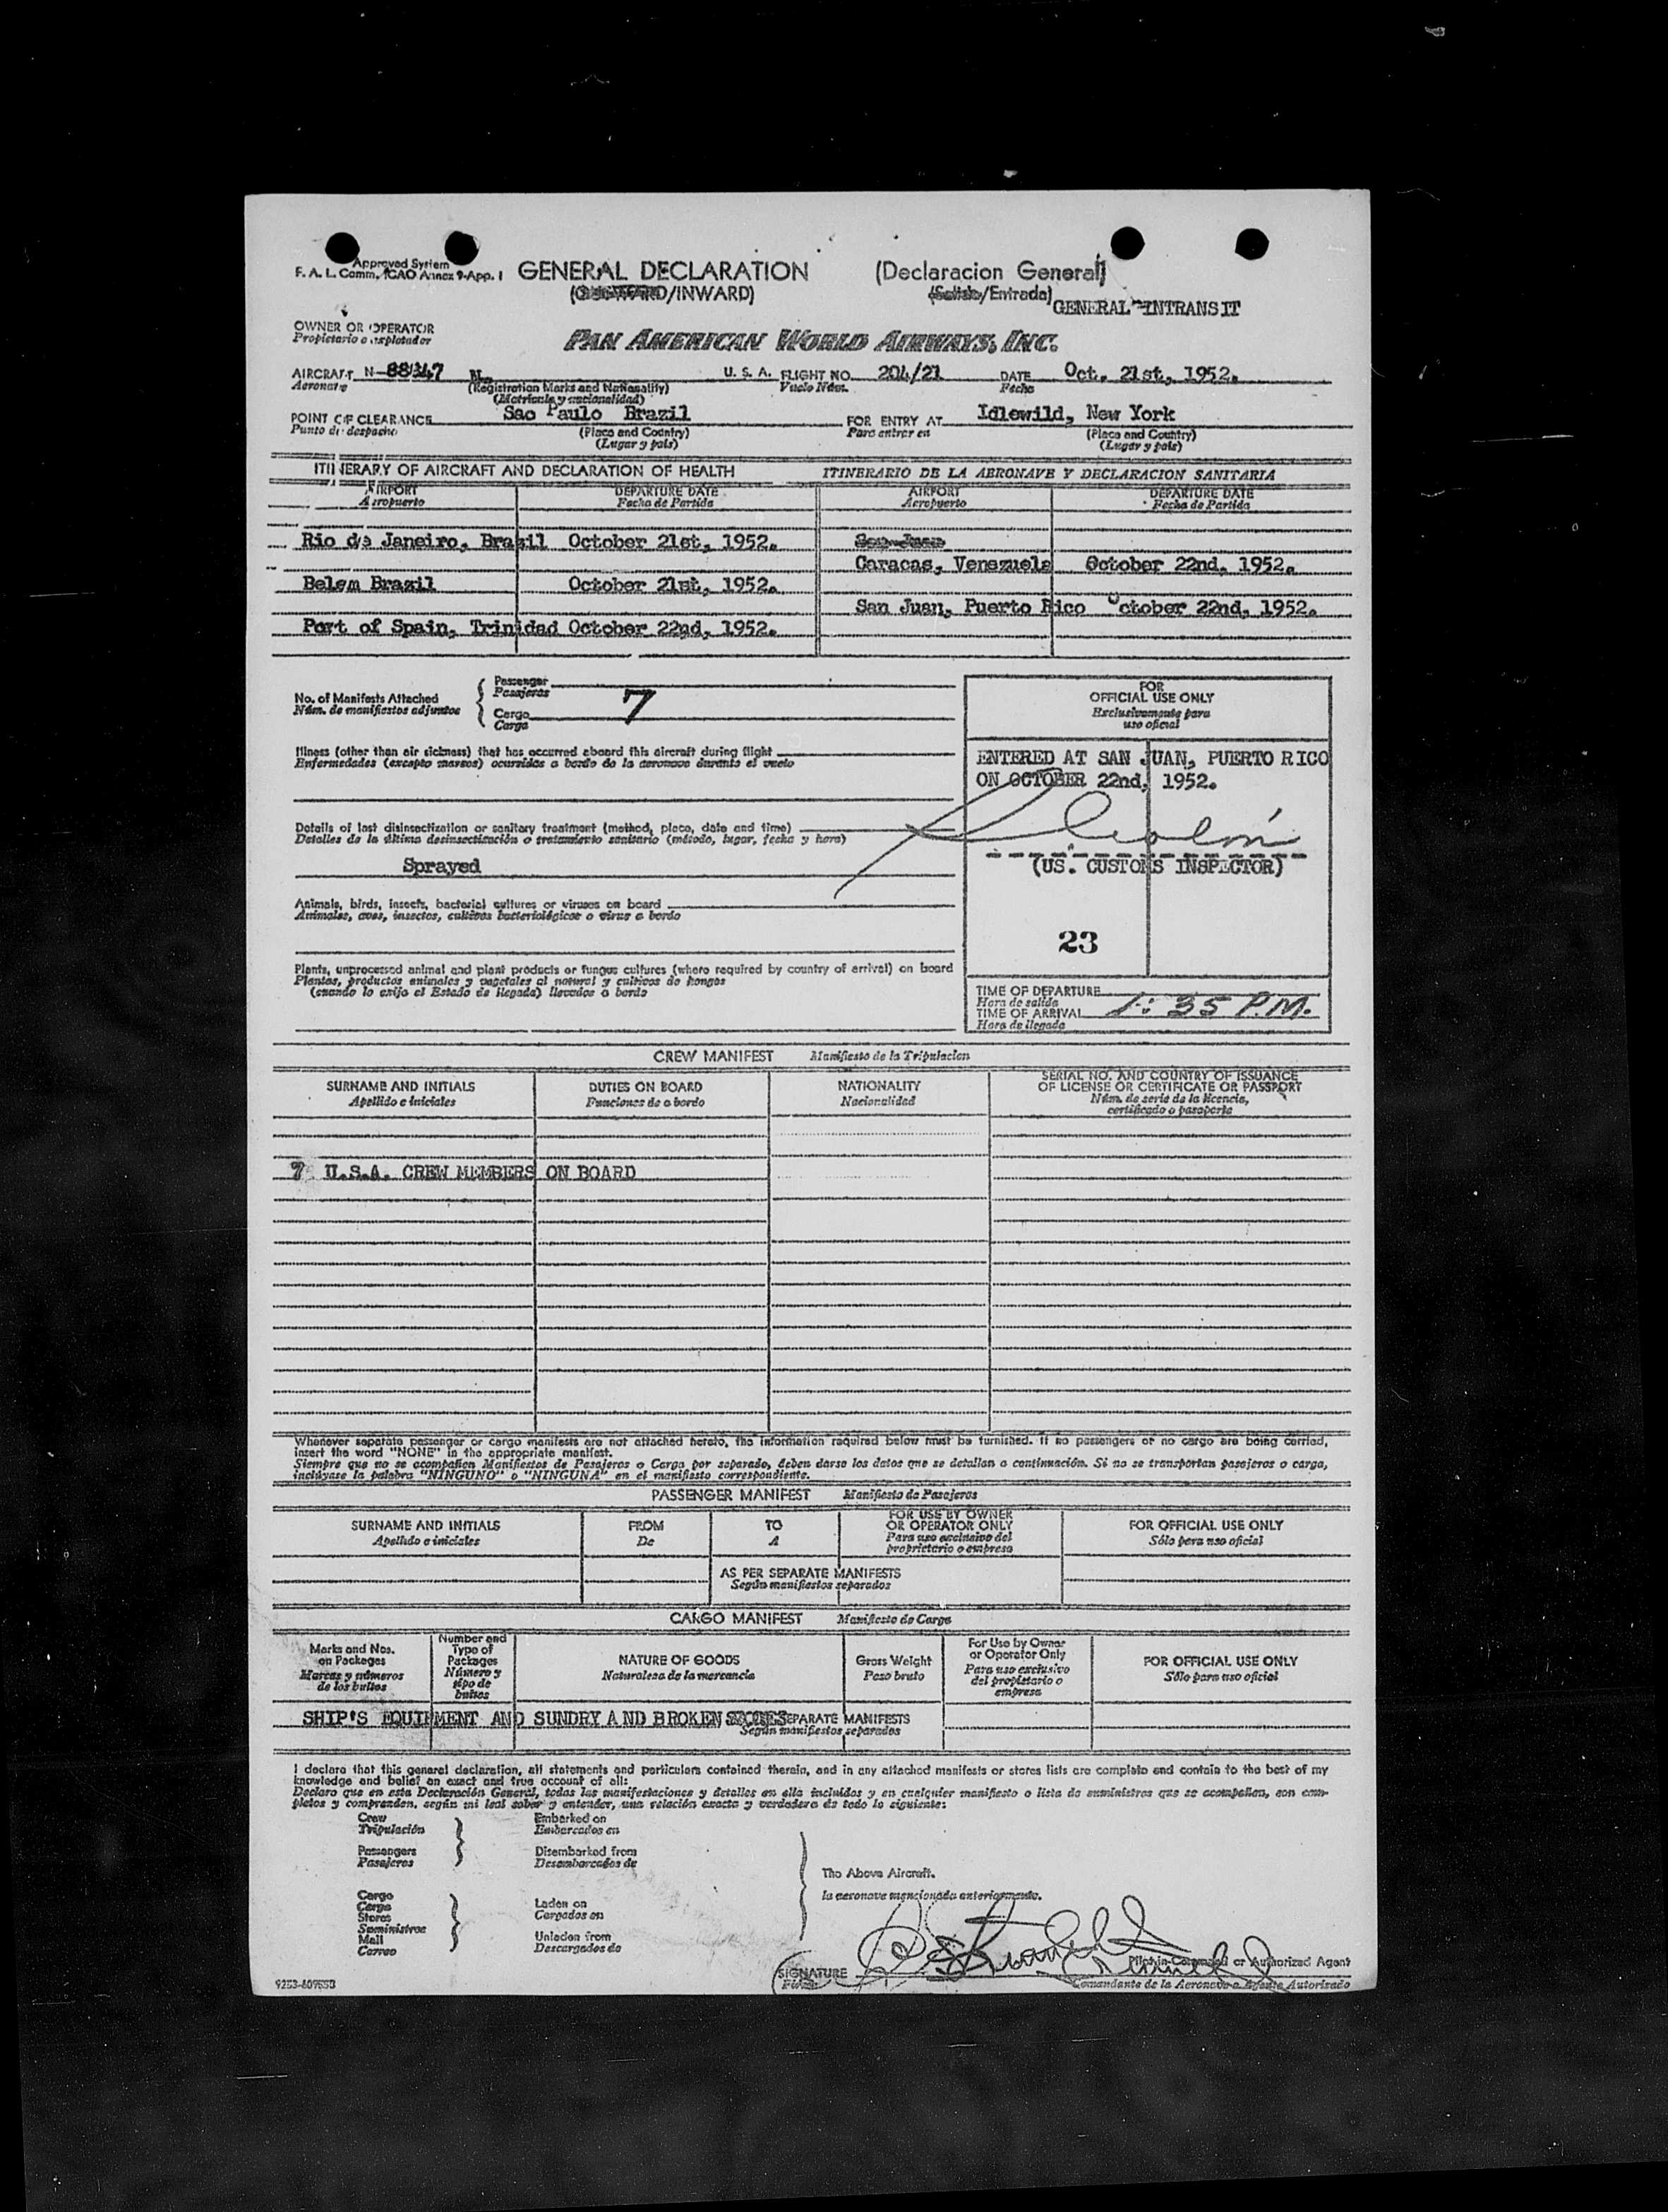 Approved System
F. A. L. Comm. ICAO Annex 9-App. 1
GENERAL DECLARATION (Declaracion General)
(OUTWARD/INWARD) (Salida/Entrada)
GENERAL - INTRANSIT
OWNER OR OPERATOR
Propietario o explotador
PAN AMERICAN WORLD AIRWAYS, INC.
AIRCRAFT N- U. S. A. FLIGHT NO. 204/21 DATE Oct. 21st, 1952.
Aeronave (Registration Marks and Nationality) Vuelo Núm. Fecha
(Matricula y nacionalidad)
POINT OF CLEARANCE Sao Paulo Brazil FOR ENTRY AT Idlewild, New York
Punto de despacho (Place and Country) Para entrar en (Place and Country)
(Lugar y país) (Lugar y país)
ITINERARY OF AIRCRAFT AND DECLARATION OF HEALTH ITINERARIO DE LA AERONAVE Y DECLARACION SANITARIA
AIRPORT DEPARTURE DATE AIRPORT DEPARTURE DATE
Aeropuerto Fecha de Partida Aeropuerto Fecha de Partida
Rio de Janeiro, Brazil October 21st, 1952. San Juan
Caracas, Venezuela October 22nd, 1952.
Belem Brazil October 21st, 1952.
San Juan, Puerto Rico October 22nd, 1952.
Port of Spain, Trinidad October 22nd, 1952.
No. of Manifests Attached
Núm. de manifiestos adjuntos
Passenger
Pasajeros
7
Cargo
Carga
FOR
OFFICIAL USE ONLY
Exclusivamente para
uso oficial
Illness (other than air sickness) that has occurred aboard this aircraft during flight
Enfermedades (excepto mareos) ocurridas a bordo de la aeronave durante el vuelo
ENTERED AT SAN JUAN, PUERTO RICO
ON OCTOBER 22nd, 1952.
Details of last disinsectization or sanitary treatment (method, place, date and time)
Detalles de la última desinsectización o tratamiento sanitario (método, lugar, fecha y hora)
Sprayed
(US. CUSTOMS INSPECTOR)
Animals, birds, insects, bacterial cultures or viruses on board
Animales, aves, insectos, cultivos bacteriológicos o virus a bordo
23
Plants, unprocessed animal and plant products or fungus cultures (where required by country of arrival) on board
Plantas, productos animales y vegetales al natural y cultivos de hongos
(cuando lo exija el Estado de llegada) llevados a bordo
TIME OF DEPARTURE
Hora de salida
TIME OF ARRIVAL 1:35 P.M.
Hora de llegada
CREW MANIFEST Manifiesto de la Tripulacion
SURNAME AND INITIALS DUTIES ON BOARD NATIONALITY SERIAL NO. AND COUNTRY OF ISSUANCE
OF LICENSE OR CERTIFICATE OR PASSPORT
Apellido e iniciales Funciones de a bordo Nacionalidad Núm. de serie de la licencia,
certificado o pasaporte
7 U.S.A. CREW MEMBERS ON BOARD
Whenever separate passenger or cargo manifests are not attached hereto, the information required below must be furnished. If no passengers or no cargo are being carried,
insert the word "NONE" in the appropriate manifest.
Siempre que no se acompañen Manifiestos de Pasajeros o Carga por separado, deben darse los datos que se detallan a continuación. Si no se transportan pasajeros o carga,
inclúyase la palabra "NINGUNO" o "NINGUNA" en el manifiesto correspondiente.
PASSENGER MANIFEST Manifiesto de Pasajeros
SURNAME AND INITIALS FROM TO FOR USE BY OWNER
OR OPERATOR ONLY FOR OFFICIAL USE ONLY
Apellido e iniciales De A Para uso exclusivo del
propietario o empresa Sólo para uso oficial
AS PER SEPARATE MANIFESTS
Según manifiestos separados
CARGO MANIFEST Manifiesto de Carga
Marks and Nos.
on Packages
Marcas y números
de los bultos
Number and
Type of
Packages
Número y
tipo de
bultos
NATURE OF GOODS
Naturaleza de la mercancia
Gross Weight
Peso bruto
For Use by Owner
or Operator Only
Para uso exclusivo
del propietario o
empresa
FOR OFFICIAL USE ONLY
Sólo para uso oficial
SHIP'S EQUIPMENT AND SUNDRY AND BROKEN STORES SEPARATE MANIFESTS
Según manifiestos separados
I declare that this general declaration, all statements and particulars contained therein, and in any attached manifests or stores lists are complete and contain to the best of my
knowledge and belief an exact and true account of all:
Declaro que en esta Declaración General, todas las manifestaciones y detalles en ella incluidos y en cualquier manifiesto o lista de suministros que se acompañen, son com-
pletos y comprenden, según mi leal saber y entender, una relación exacta y verdadera de todo lo siguiente:
Crew Embarked on
Tripulación Embarcados en
Passengers Disembarked from
Pasajeros Desembarcados de
The Above Aircraft.
la aeronave mencionada anteriormente.
Cargo Laden on
Carga Cargados en
Stores
Suministros
Mail Unladen from
Correo Descargados de
SIGNATURE Pilot-in-Command or Authorized Agent
Firma Comandante de la Aeronave o Agente Autorizado